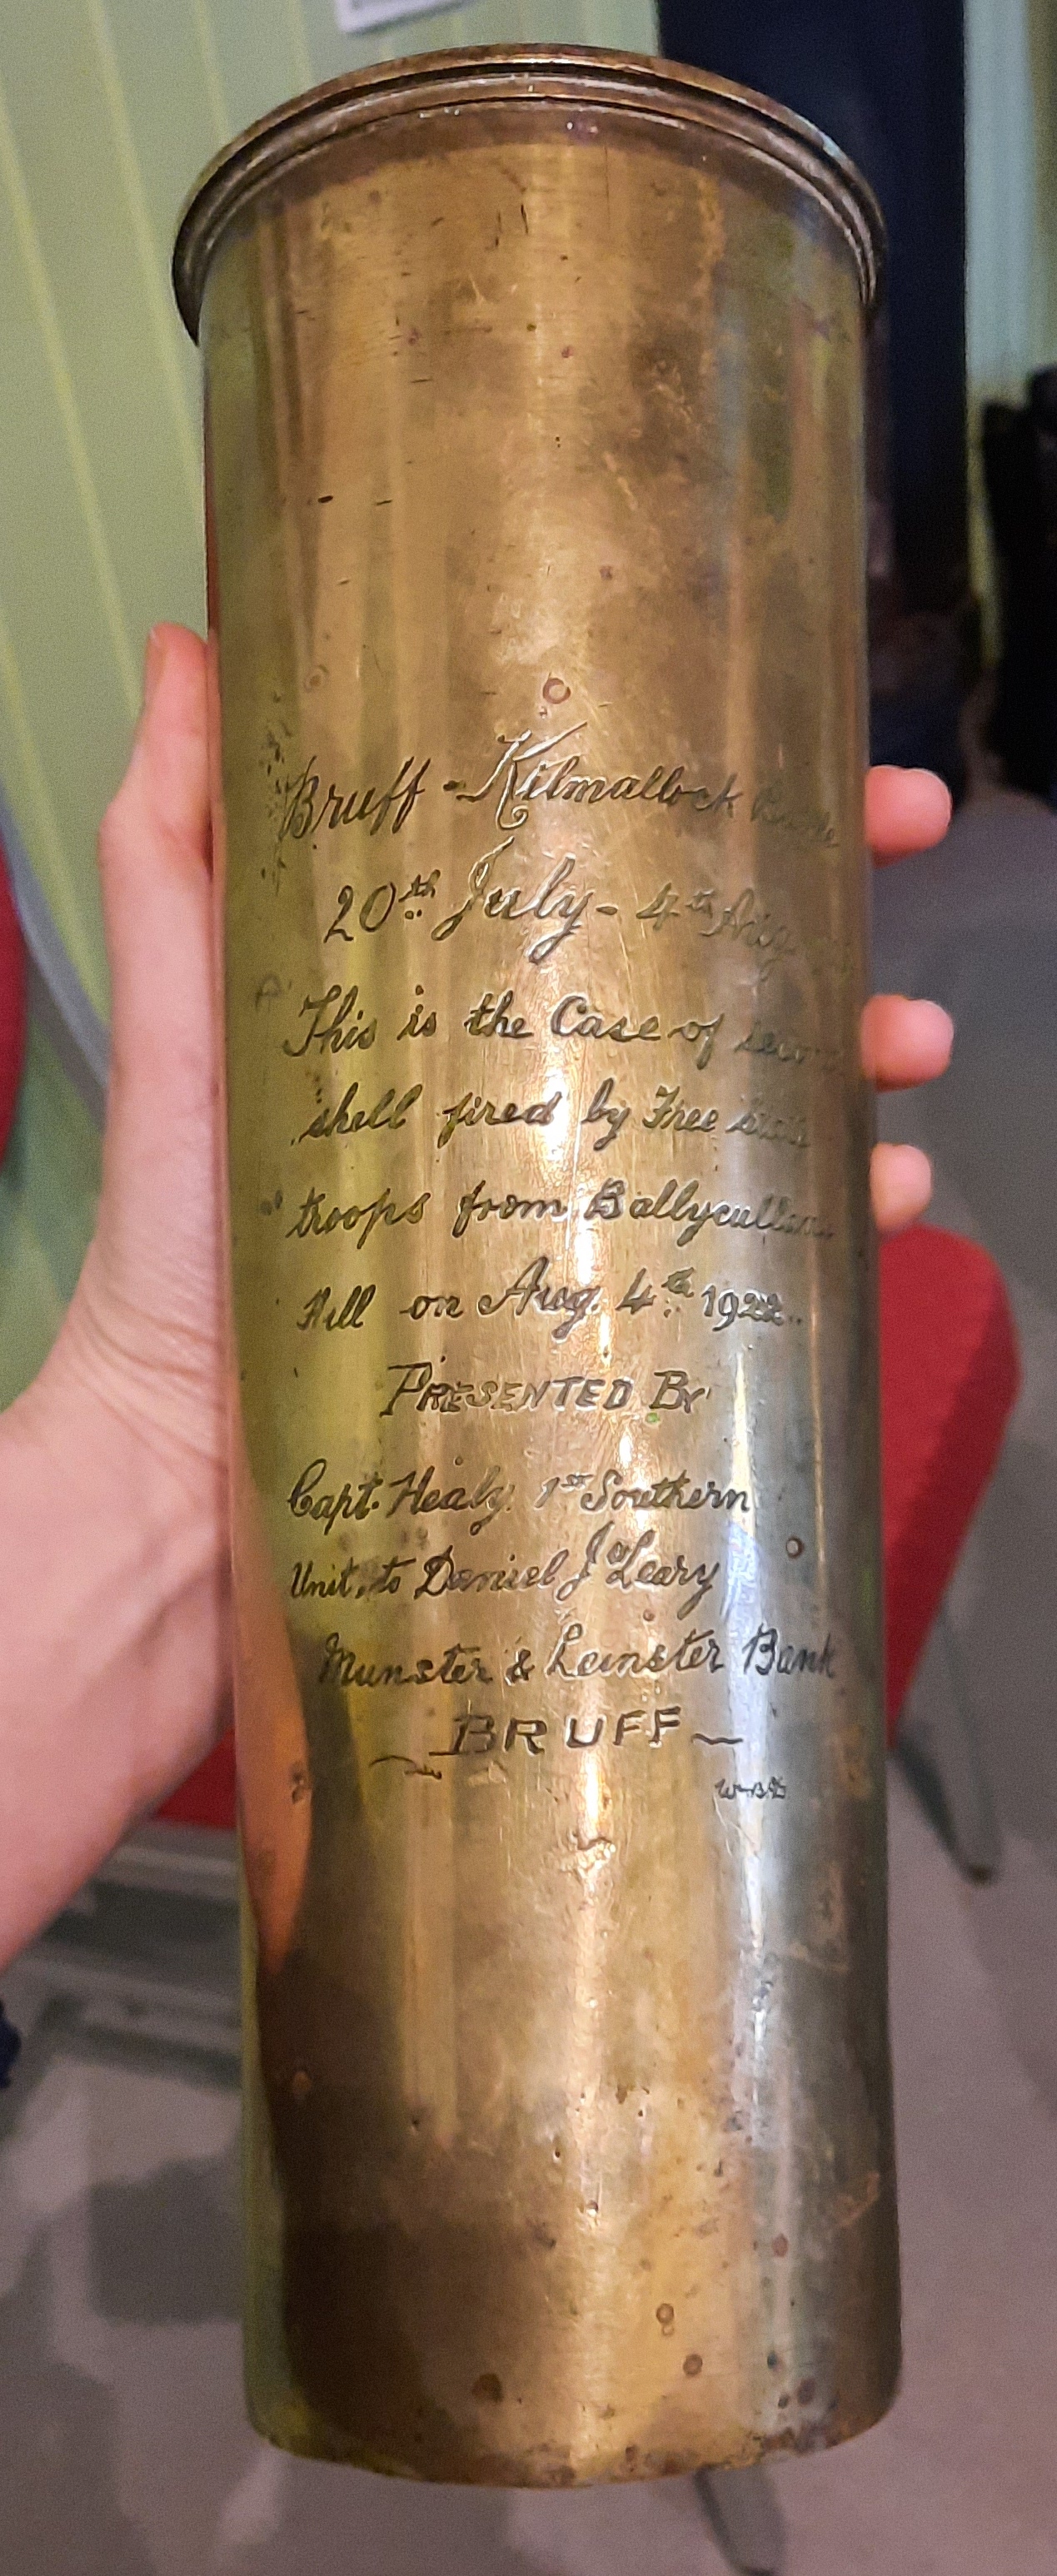 Bruff - Kilmallock
20th July - 4th Aug
This is the Case of second
shell fired by Free State
troops from Ballycullane
Hill on Aug. 4th 1922.
PRESENTED BY
Capt. Healy 1st Southern
Unit, to Daniel J O'Leary
Munster & Leinster Bank
BRUFF